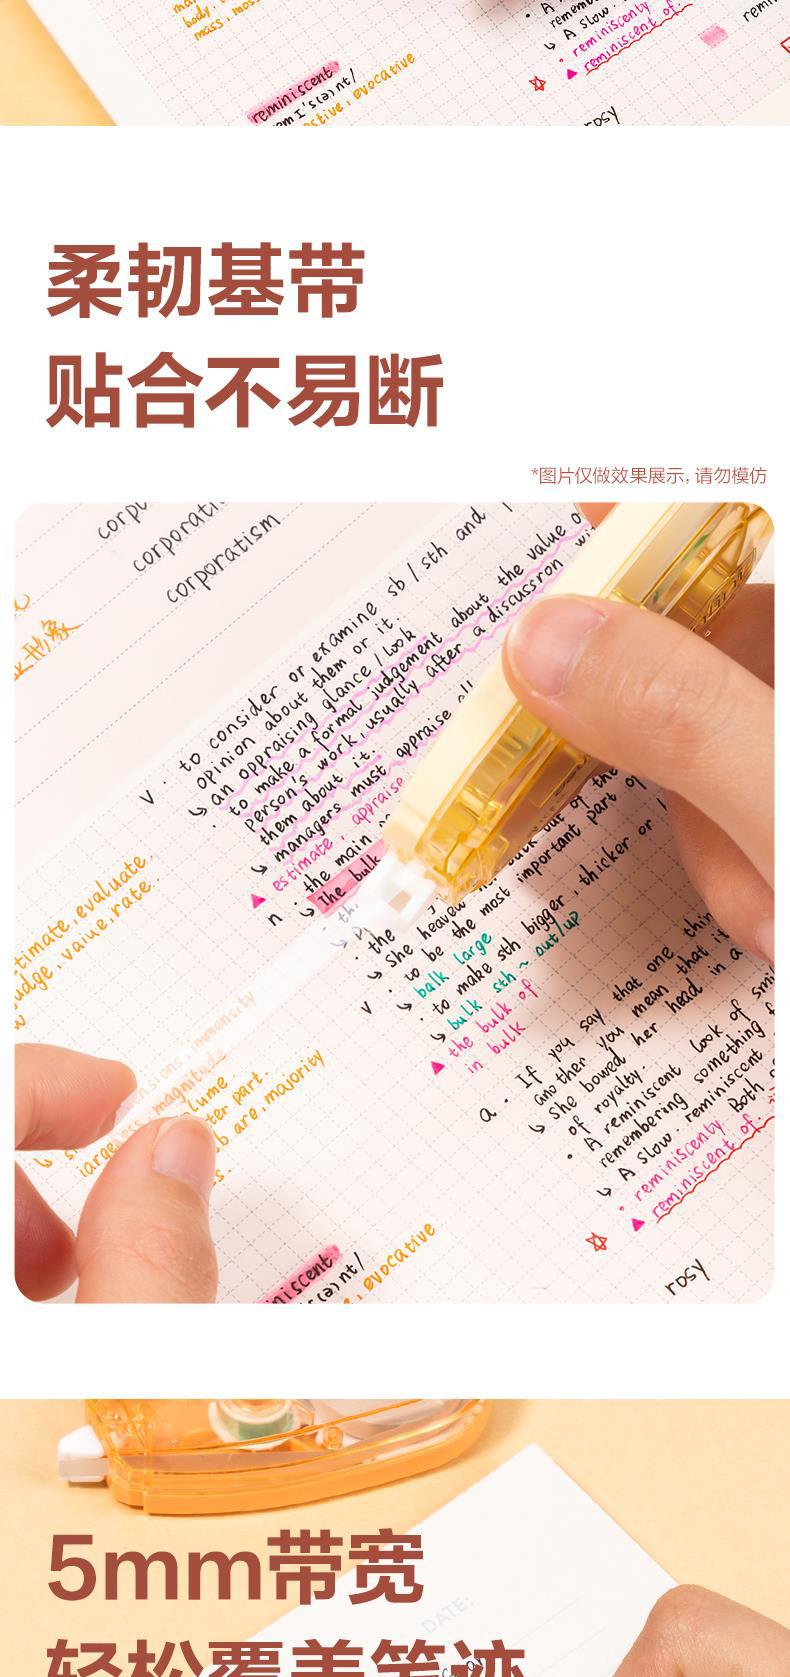 body,
mass, mos
remember
A slow.
reminiscenty
reminiscent of.
reminiscent
em I's(ə)nt/
estive, evocative
rosy
柔韧基带
贴合不易断
*图片仅做效果展示, 请勿模仿
corpo
corporati
corporatism
形象
v. to consider or examine sb / sth and
opinion about them or it.
↳ an appraising glance / look
· to make a formal judgement about the value o
person's work, usually after a discussion wi
them about it.
↳ managers must appraise all
▲ estimate, appraise
n · the main
↳ The bulk
· the
↳ She heaved
· to be the most important part of
↳ balk large
v · to make sth bigger, thicker or
↳ bulk sth ~ out/up
▲ the bulk of
in bulk
timate, evaluate.
udge, value, rate.
ensions, immensity
largeness, magnitude
lume.
ter part.
b are, majority
a · If you say that one thin
another you mean that it
↳ She bowed her head in a
of royalty.
• A reminiscent look of smi
remembering something
↳ A slow. reminiscent
Both
· reminiscenty
▲ reminiscent of.
niscent
s(ə)nt/
, evocative
rosy
5mm带宽
DATE:
轻松覆盖笔迹